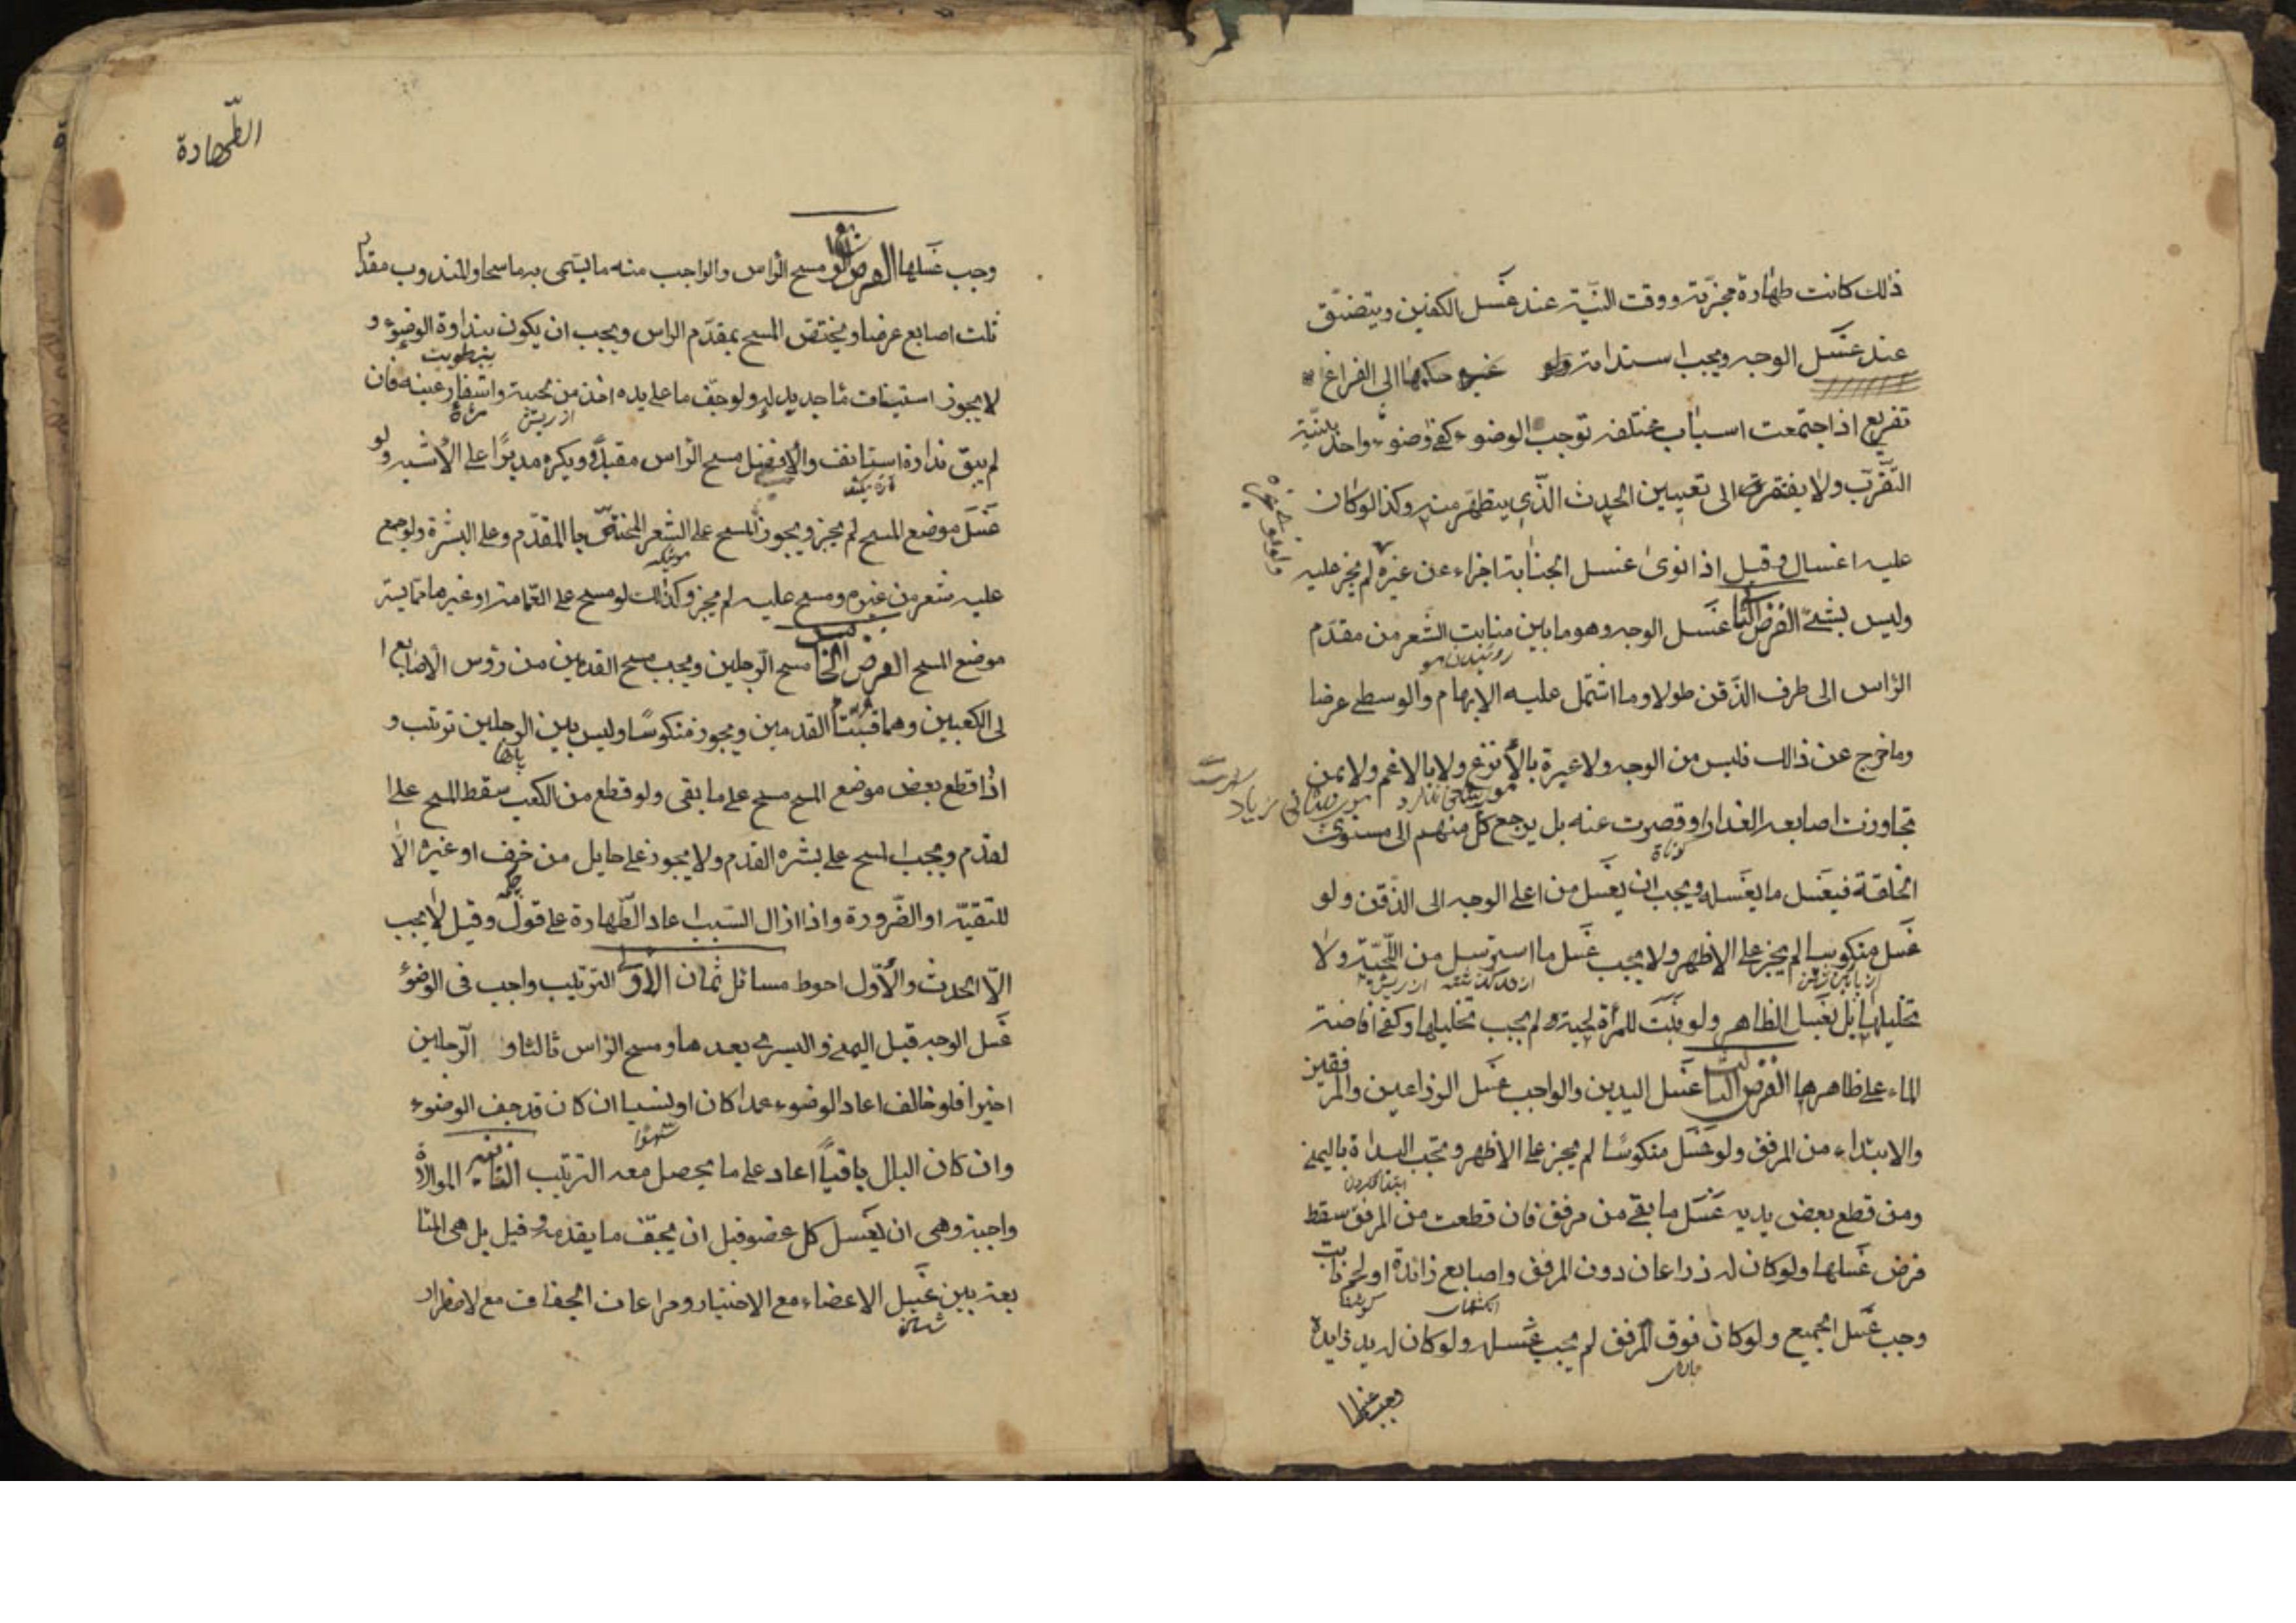 ذلك كانت طهارة مجزية ووقت النية عند غسل الكفين ويتضيق
عند غسل الوجه ويجب استدامة حكمها الى الفراغ
تفريع اذا اجتمعت اسباب مختلفة توجب الوضوء كفى وضوء واحد بنية
التقرب ولا يفتقر الى تعيين الحدث الذي يتطهر منه وكذا لو كان
عليه اغسال وقيل اذا نوى غسل الجنابة اجزاء عن غيره ولو نوى غيره لم يجز عليه
وليس بشئ الفرض الثانى غسل الوجه وهو ما بين منابت الشعر من مقدم
روئيدن مو
الراس الى طرف الذقن طولا وما اشتمل عليه الابهام والوسطى عرضا
وما خرج عن ذالك فليس من الوجه ولا عبرة بالأنزع ولا بالاغم ولا بمن
تجاوزت اصابعه العذار او قصرت عنه بل يرجع كل منهم الى مستوى
كوتاة
الخلقة فيغسل ما يغسله ويجب ان يغسل من اعلى الوجه الى الذقن ولو
غسل منكوسا لم يجز على الاظهر ولا يجب غسل ما استرسل من اللحية ولا
تخليلها بل يغسل الظاهر ولو نبت للمرأة لحية لم يجب تخليلها وكفى افاضة
الماء على ظاهرها الفرض الثالث غسل اليدين والواجب غسل الذراعين والمرفقين
والابتداء من المرفق ولو غسل منكوسا لم يجز على الاظهر وتجب البداة باليمنى
ابتدا كردن
ومن قطع بعض يديه غسل ما بقى من مرفق فان قطعت من المرفق سقط
فرض غسلها ولو كان له ذراعان دون المرفق واصابع زائدة او لحم نابت
وجب غسل الجميع ولو كان فوق المرفق لم يجب غسله ولو كان له يد زايدة
وجب غسلها
الطهارة
وجب غسلها الفرض الرابع مسح الراس والواجب منه ما يسمى به ماسحا والمندوب مقدار
ثلث اصابع عرضا ويختص المسح بمقدم الراس ويجب ان يكون بنداوة الوضوء و
لا يجوز استيناف ماء جديد له ولو جف ما على يده اخذ من لحيته واشفار عينه فان
از ريش مژة
لم يبق نداوة استانف والأفضل مسح الراس مقبلا ويكره مدبرا على الأشبه ولو
غسل موضع المسح لم يجز ويجوز المسح على الشعر المختص بالمقدم وعلى البشرة ولو جمع
عليه شعر من غيره ومسح عليه لم يجز وكذلك لو مسح على العمامة او غيرها مما يستر
موضع المسح الفرض الخامس مسح الرجلين ويجب مسح القدمين من رؤس الأصابع ا
لى الكعبين وهما قبتا القدمين ويجوز منكوسا وليس بين الرجلين ترتيب و
اذا قطع بعض موضع المسح مسح على ما بقى ولو قطع من الكعب سقط المسح على ا
لقدم ويجب المسح على بشره القدم ولا يجوز على حايل من خف او غيره الا
للتقية او الضرورة واذا زال السبب اعاد الطهارة على قول وقيل لا يجب
الا الحدث والأول احوط مسائل ثمان الأولى الترتيب واجب فى الوضوء
غسل الوجه قبل اليمنى واليسرى بعدها ومسح الراس ثالثا و الرجلين
اخيرا فلو خالف اعاد الوضوء عمدا كان او نسيا ان كان قد جف الوضوء
سهوا
وان كان البلل باقيا اعاد على ما يحصل معه الترتيب الثانيه الموالاة
واجبة وهى ان يغسل كل عضو قبل ان يجف ما يقدمه وقيل بل هى المتا
بعة بين غسل الاعضاء مع الاختيار ومراعات الجفاف مع لاضطرار
شستن